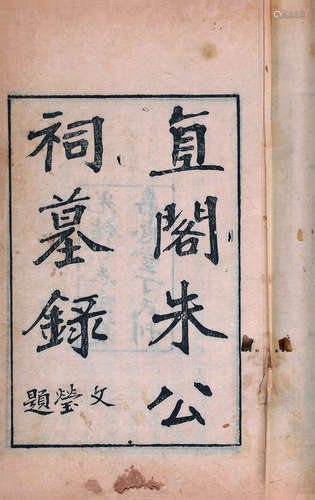 直閣朱公
祠墓録
文瑩題